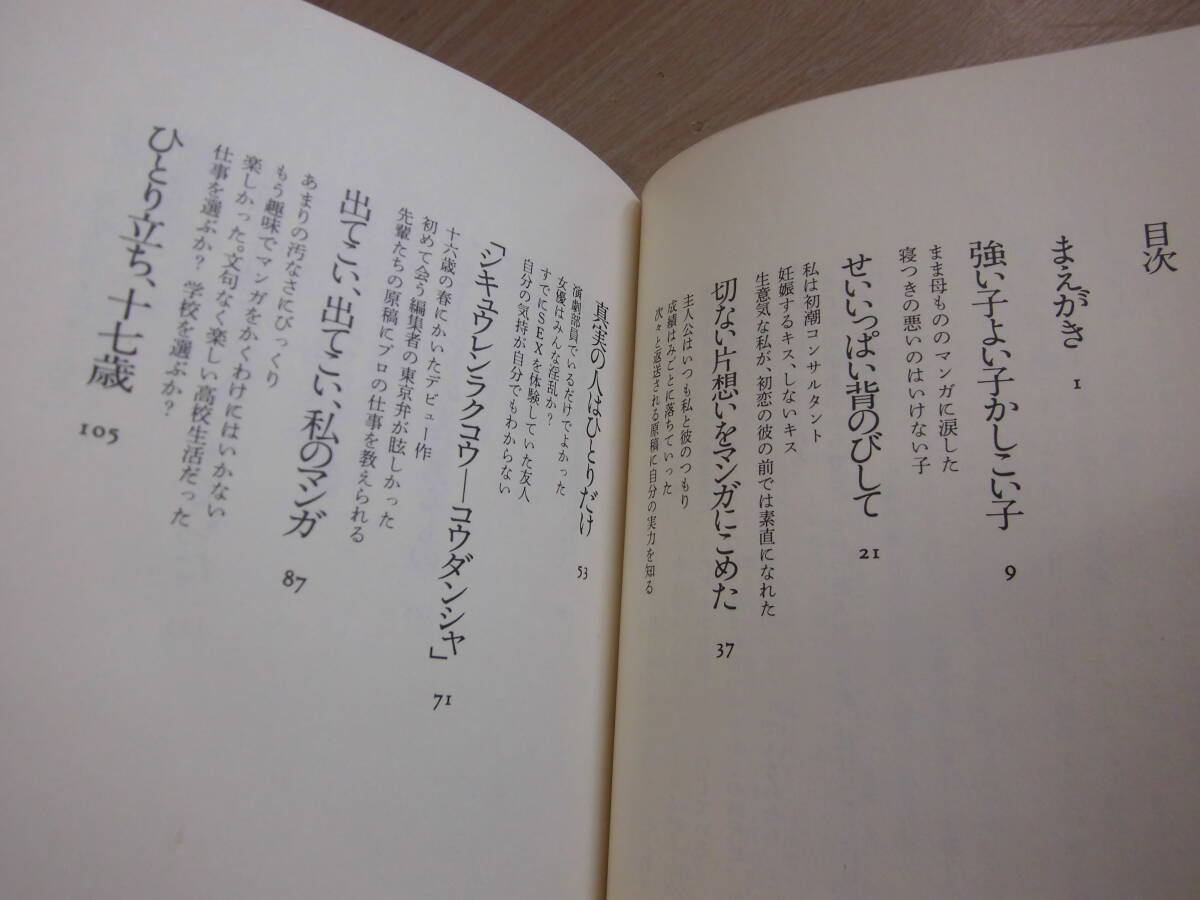 目次
まえがき 1
強い子よい子かしこい子 9
まま母もののマンガに涙した
寝つきの悪いのはいけない子
せいいっぱい背のびして 21
私は初潮コンサルタント
妊娠するキス、しないキス
生意気な私が、初恋の彼の前では素直になれた
切ない片想いをマンガにこめた 37
主人公はいつも私と彼のつもり
成績はみごとに落ちていった
次々と返送される原稿に自分の実力を知る
真実の人はひとりだけ 53
演劇部員でいるだけでよかった
女優はみんな淫乱か?
すでにSEXを体験していた友人
自分の気持が自分でもわからない
「シキュウレンラクコウーコウダンシャ」 71
十六歳の春にかいたデビュー作
初めて会う編集者の東京弁が眩しかった
先輩たちの原稿にプロの仕事を教えられる
出てこい、出てこい、私のマンガ 87
あまりの汚なさにびっくり
もう趣味でマンガをかくわけにはいかない
楽しかった。文句なく楽しい高校生活だった
仕事を選ぶか? 学校を選ぶか?
ひとり立ち、十七歳 105